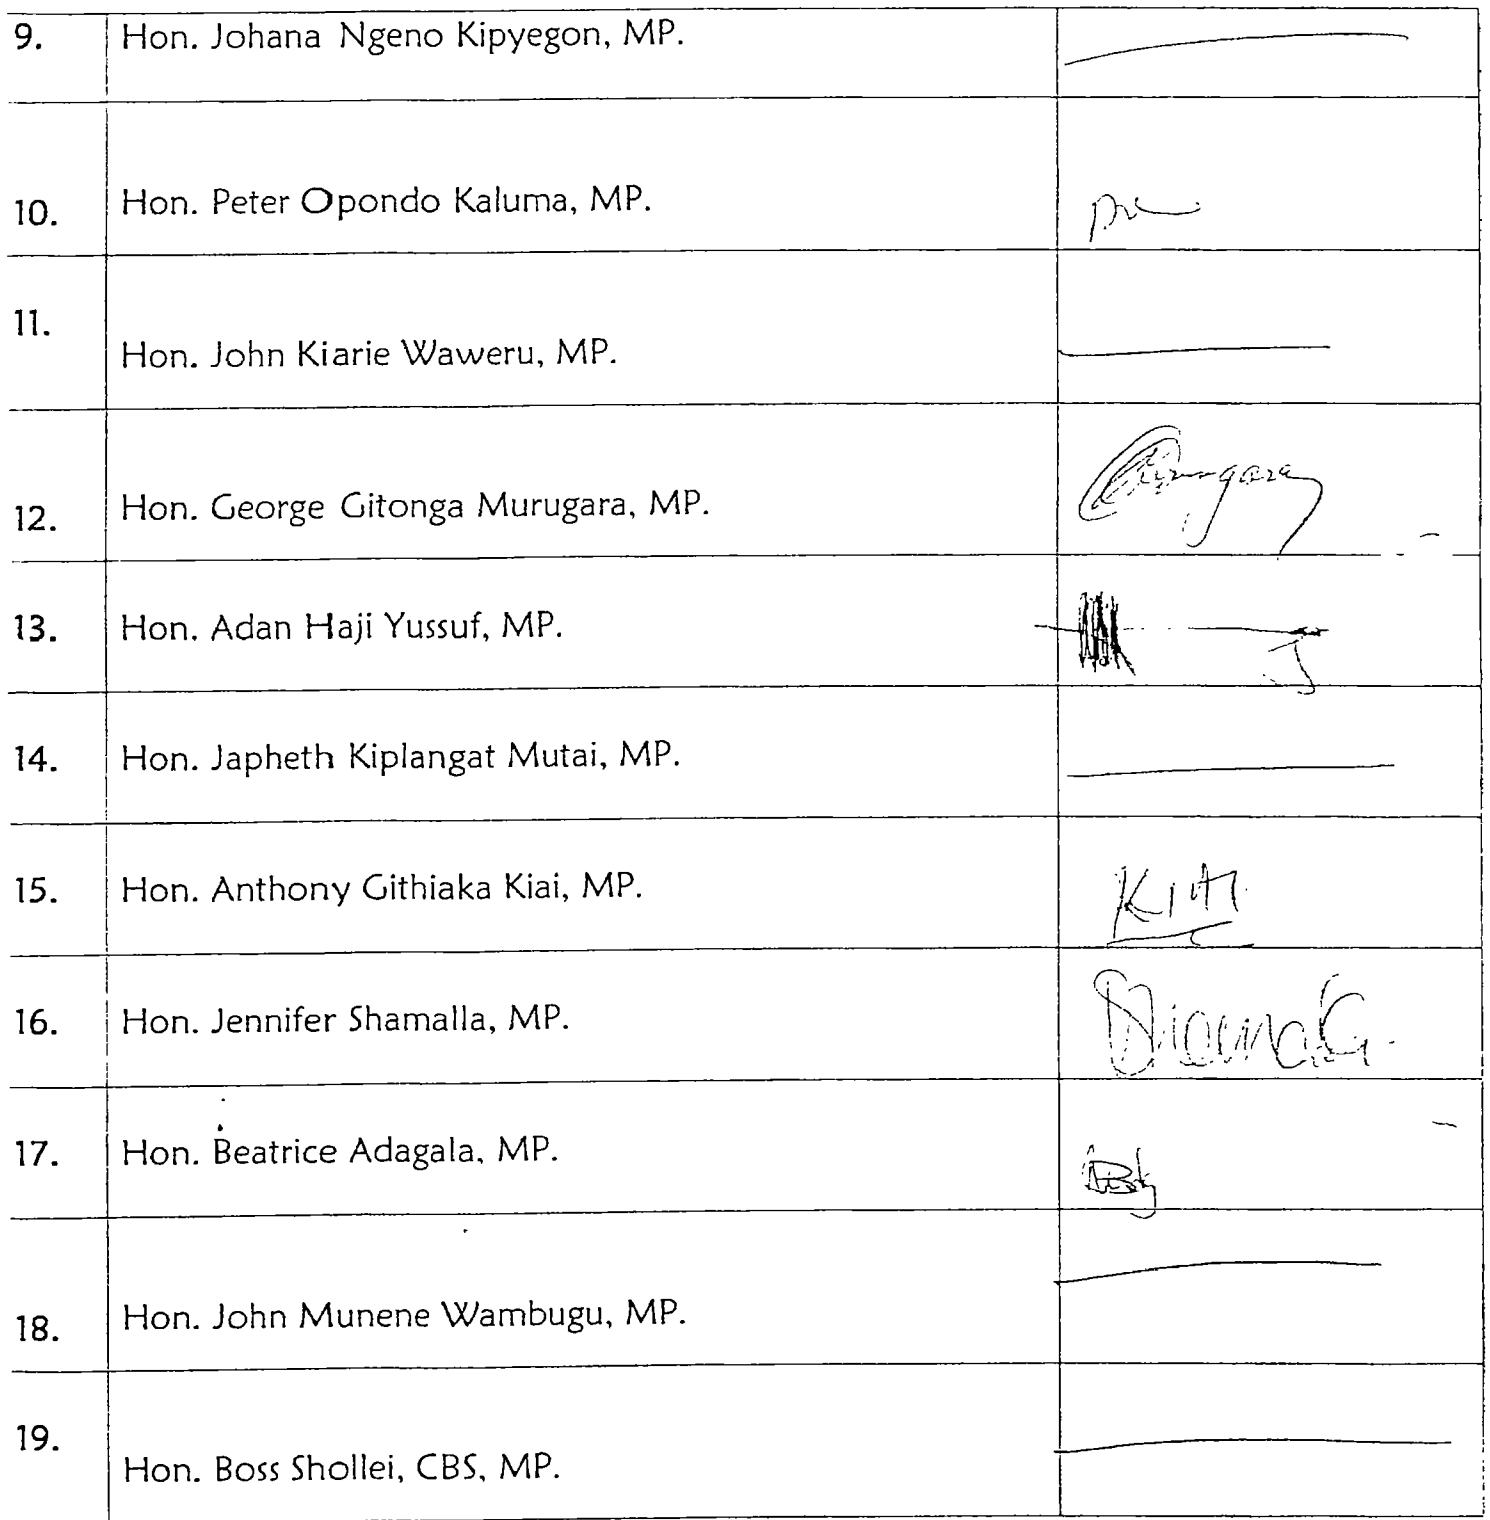 9. Hon. Johana Ngeno Kipyegon, MP.
10. Hon. Peter Opondo Kaluma, MP.
11. Hon. John Kiarie Waweru, MP.
12. Hon. George Gitonga Murugara, MP.
13. Hon. Adan Haji Yussuf, MP.
14. Hon. Japheth Kiplangat Mutai, MP.
15. Hon. Anthony Githiaka Kiai, MP.
16. Hon. Jennifer Shamalla, MP.
17. Hon. Beatrice Adagala, MP.
18. Hon. John Munene Wambugu, MP.
19. Hon. Boss Shollei, CBS, MP.